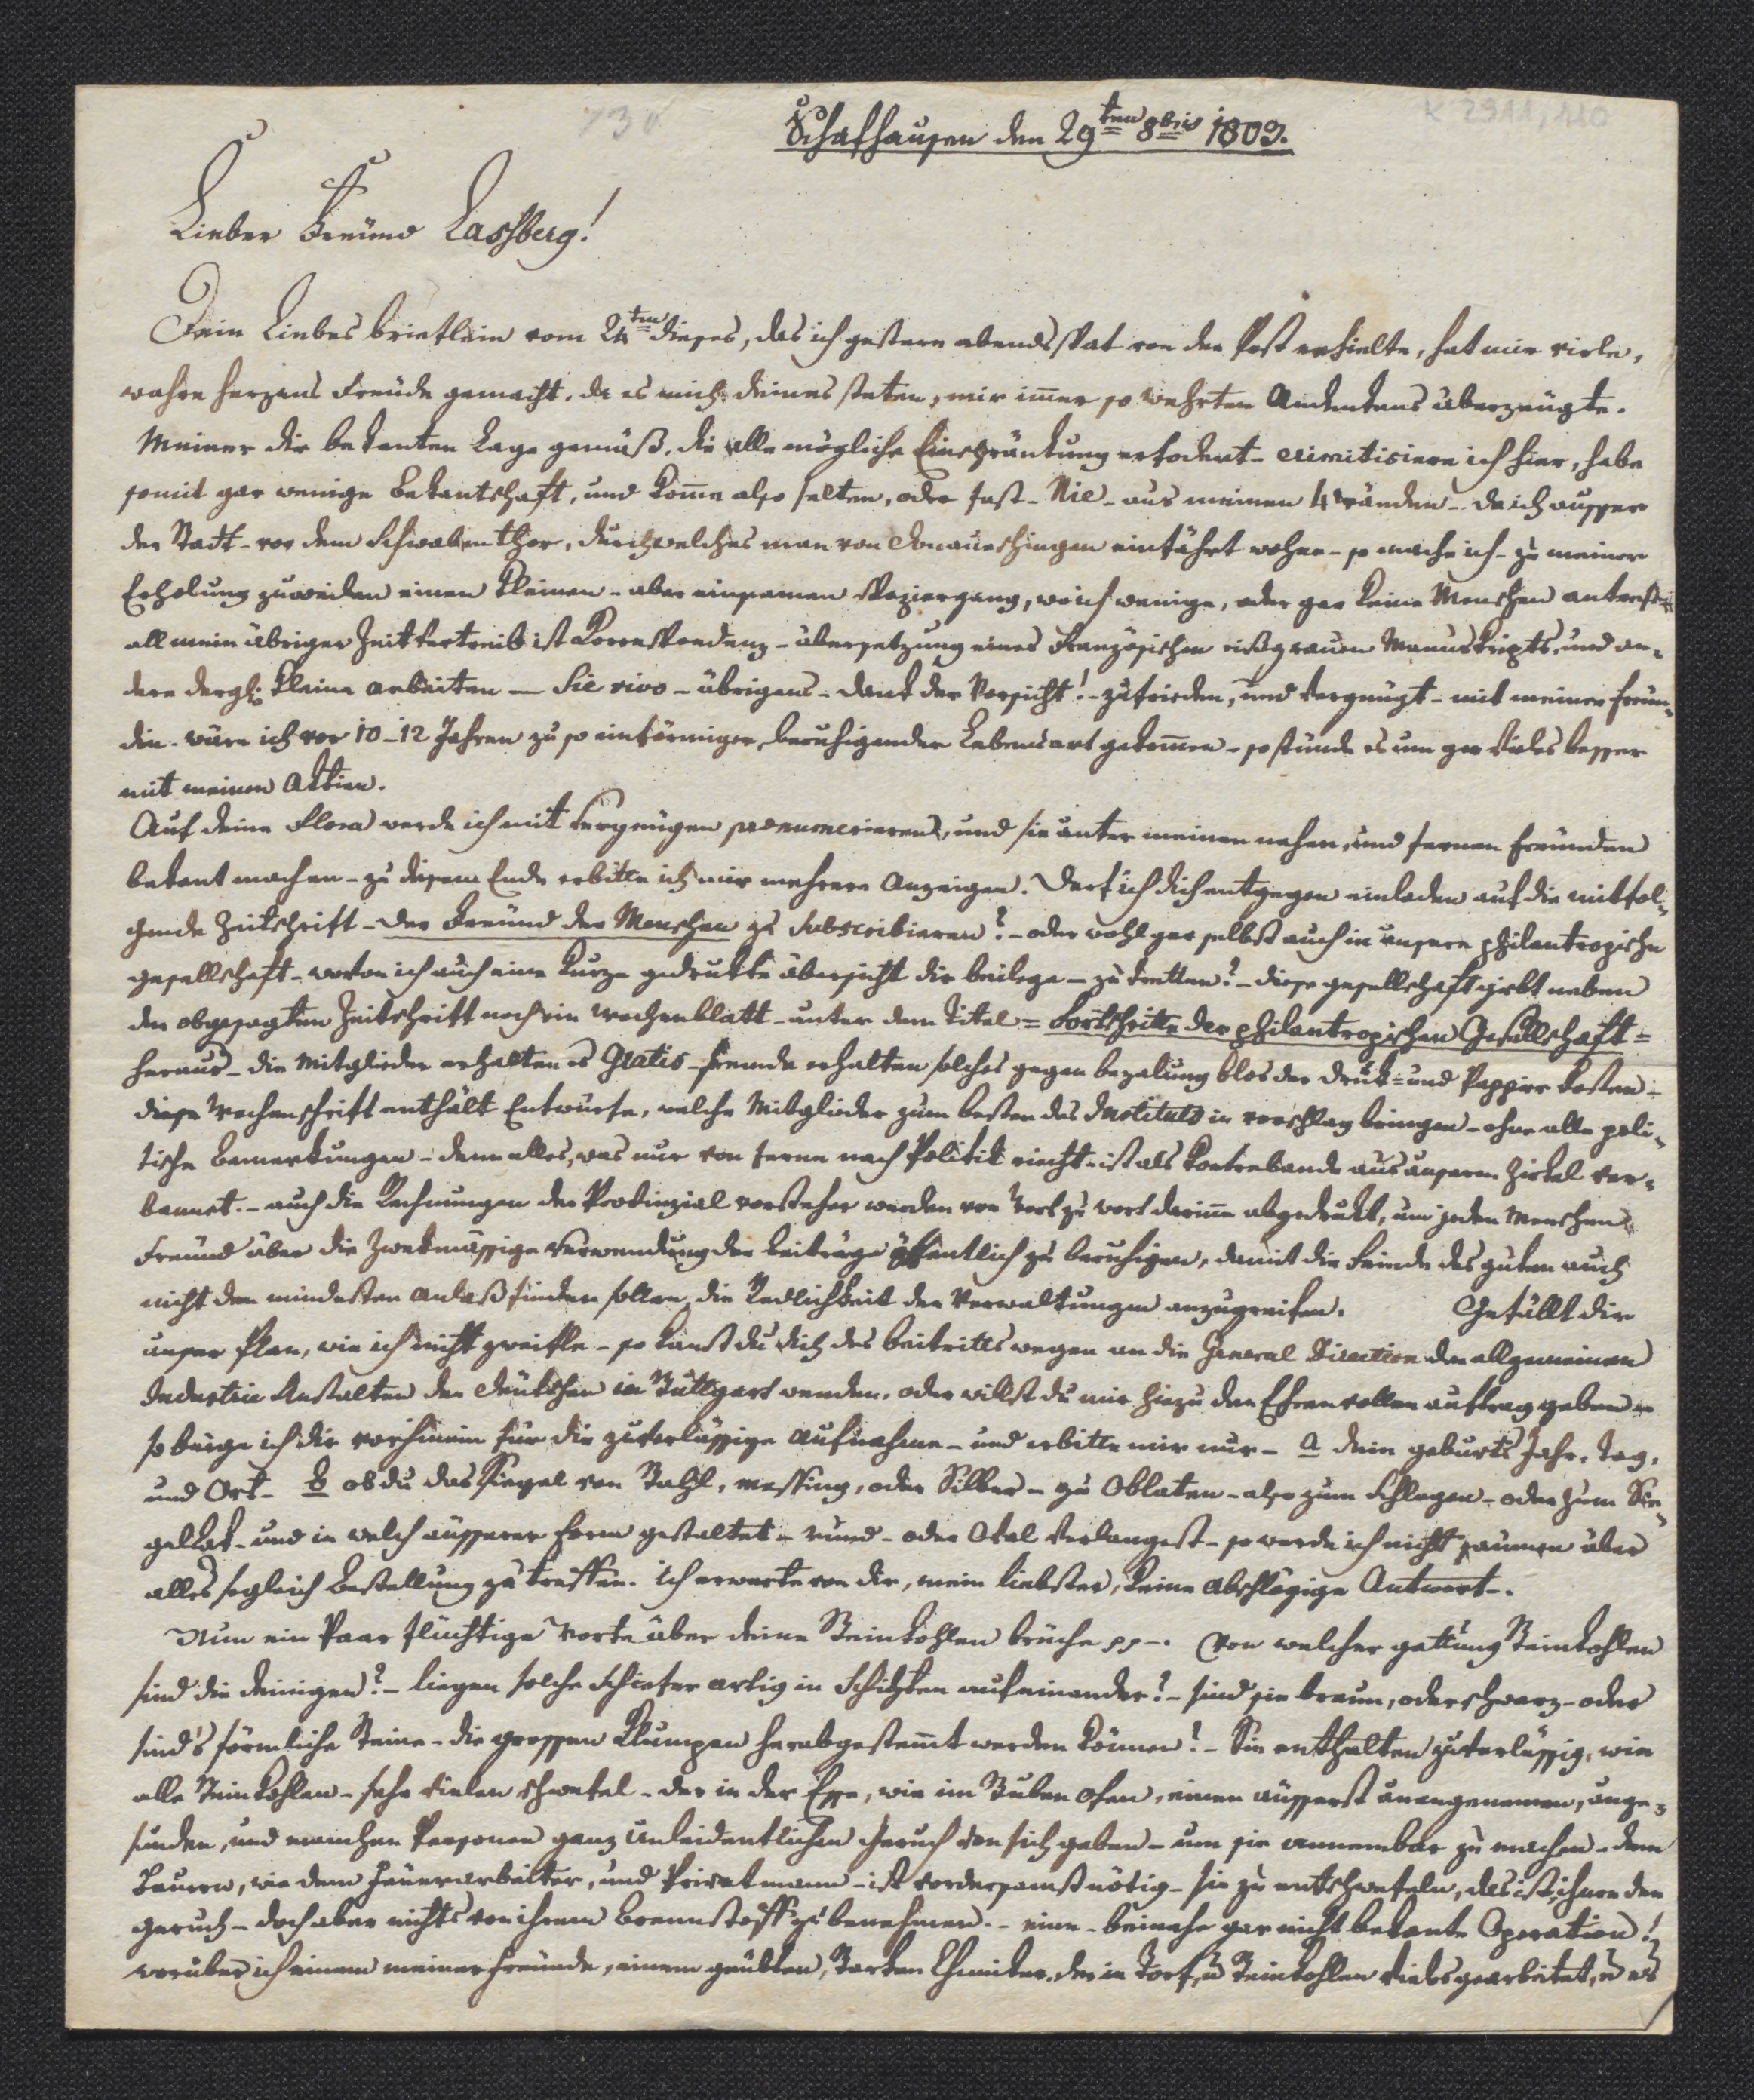 730
K 2911,110
Schafhausen den 29ten 8bris 1803.
Lieber Freünd Lassberg!
Dein Liebes brieflein vom 24ten dieses, das ich gestern abends spat von der Post erhielte, hat mir viele,
wahre herzens Freüde gemacht, da es mich deines steten, mir im̅er so wehrten Andenkens überzeügte.
Meiner dir bekanten Lage gemäß, die alle mögliche Einschränkung erfodert - eremitisiere ich hier, habe
somit gar wenige bekantschaft, und kom̅e also selten, oder fast - Nie - aus meinen 4 wänden - da ich ausser
der Statt - vor dem Schwabenthor, durch welches man von Donaueschingen einfährt wohne - so mache ich - zu meiner
Erholung zuweilen einen kleinen - aber einsamen Spaziergang, wo ich wenige, oder gar keine Menschen antreffe
all mein übriger Zeitvertreib ist Korrespondenz - übersetzung eines Französischen Manuskripts, und an-
dere dergl: kleine arbeiten — Sic vivo - übrigens - dank der Vorsicht! - zufrieden, und vergnügt - mit meiner freün-
din. wäre ich vor 10 - 12 Jahren zu so einförmiger, beruhigender Lebensart gekom̅en - so stünde es um gar vieles besser
mit meinen Aktien.
Auf deine Flora werde ich mit vergnügen praenumerieren, und sie unter meinen nahen, und fernen freünden
bekant machen - zu disem Ende erbitte ich mir mehrere Anzeigen. Darf ich dich entgegen einladen auf die mitfol-
gende Zeitschrift - der Freünd der Menschen zu subscribieren? - oder wohl gar selbst auch in unsere philantropische
gesellschaft - wovon ich auch eine kurze gedrukte übersicht dir beilege - zu tretten? - diese gesellschaft giebt neben
der obgesagten Zeitschrift noch ein wochenblatt - unter dem Titel = Fortschritte der philantropischen Gesellschaft =
heraus - die Mitglieder erhalten es Gratis - fremde erhalten solches gegen bezalung blos der druk= und Pappier kosten -
diese Wochenschrift enthält Entwürfe, welche Mitglieder zum besten des Instituts in vorschlag bringen - ohne alle poli-
tische bemerkungen - denn alles, was nur von ferne nach Politik riecht - ist als kontrebande aus unserm Zirkel ver-
bannet. - auch die Rechnungen der Provinzial vorsteher werden von Wort zu wort darin̅e abgedrukt, um jeden Menschen
Freünd über die Zwekmässige verwendung der beiträge öffentlich zu beruhigen, damit die feinde des guten auch
nicht den mindesten anlaß finden sollen, die Redlichkeit der Verwaltungen anzugreifen. Gefällt dir
unser Plan, wie ich nicht zweifle - so kanst du dich des beitritts wegen an die General Direction der allgemeinen
Industrie Anstalten der deütschen in Stuttgart wenden, oder willst du mir hiezu den Ehrenvollen auftrag geben -
so bürge ich dir vorhinein für die zuverlässige aufnahme - und erbitte mir nur - a dein geburts Jahr, tag,
und Ort - b ob du das Siegel von Stahl, messing, oder Silber - zu Oblaten - also zum schlagen - oder zum Sie-
gellak - und in welch äusserer form gestaltet - rund - oder Oval verlangest - so werde ich nicht säumen über
alles sogleich bestellung zu treffen. Ich erwarte von dir, mein liebster, keine abschlägige Antwort -.
Nun ein Paar flüchtige worte über deine Steinkohlen brüche pp -. Von welcher gattung Steinkohlen
sind die deinigen? - liegen solche schiefer artig in schichten aufeinander? - sind sie braun, oder schwarz - oder
sind's förmliche Steine - die grossen klumpen herabgestem̅t werden können? - Sie enthalten zuverlässig, wie
alle Steinkohlen - sehr vielen schwefel - der in der Esse, wie im Stuben ofen, einen äusserst unangenemen, unge-
sunden, und manchen Personen ganz unleidentlichen geruch von sich geben - um sie annembar zu machen - dem
bauren, wie dem feüerarbeiter, und Privatmann - ist vordersamst nötig - sie zu entschwefeln, das ist, ihnen den
geruch - doch aber nichts von ihrem brennstoff zu benehmen. - eine - beinahe gar nicht bekante Operation!
worüber ich einem meiner freünde, einem geübten, starken Chmiker, der in torf, u Steinkohlen vieles gearbeitet, u es